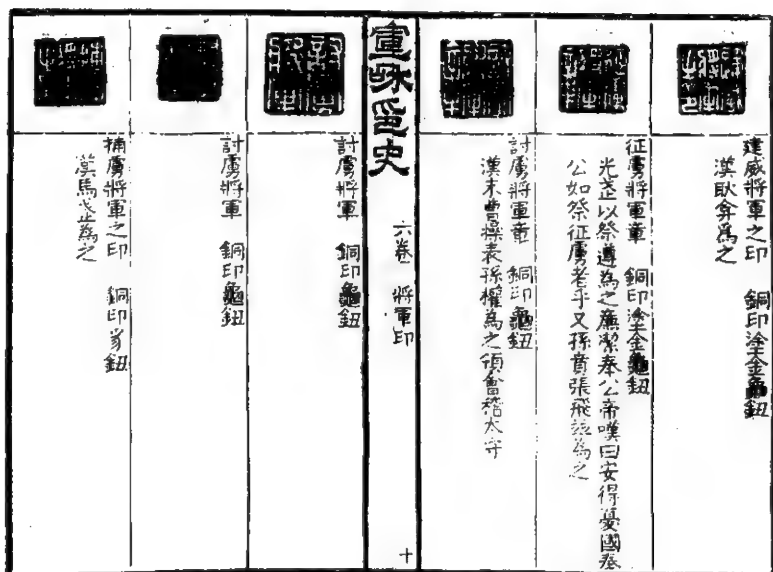 建威將軍之印 銅印塗金龜鈕
漢耿弇爲之
征虜將軍章 銅印塗金龜鈕
光武以祭遵為之廉潔奉公帝嘆曰安得憂國奉
公如祭征虜者乎又孫賁張飛並為之
討虜將軍章 銅印龜鈕
漢末曹操表孫權為之領會稽太守
宣和印史
六卷 將軍印
十
討虜將軍 銅印龜鈕
討虜將軍 銅印龜鈕
捕虜將軍之印 銅印鈕
漢馬武為之